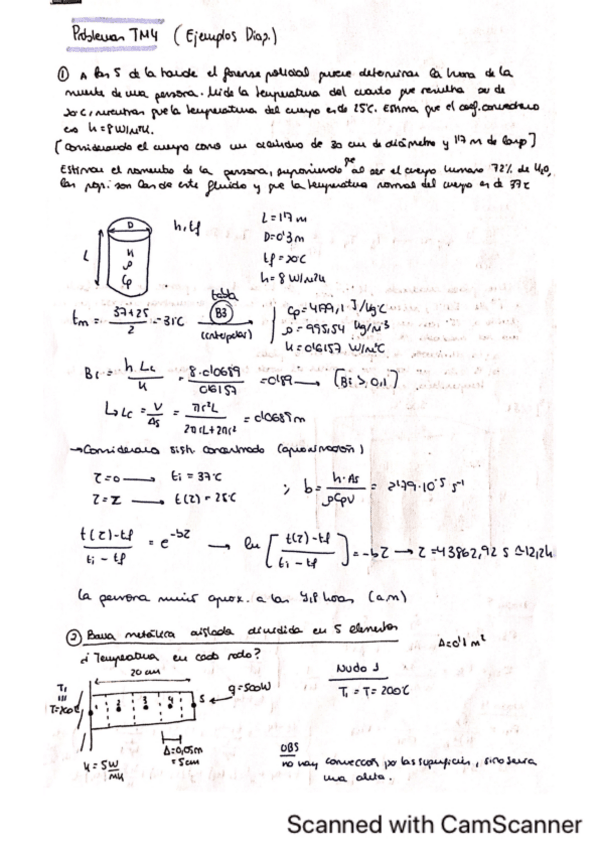 Problemas TM4 (Ejemplos Diap.)
① A las 5 de la tarde el forense policial puede determinar la hora de la
muerte de una persona. Mide la temperatura del cuarto que resulta de
20°C, mientras que la temperatura del cuerpo es de 25°C. Estima que el coef. convectivo
es h=8 W/m²K.
[Considerando el cuerpo como un cilindro de 30 cm de diámetro y 1'7 m de largo]
Estimar el momento de la persona, suponiendo que al ser el cuerpo humano 72% de H₂O,
las prop. son las de este fluido y que la temperatura normal del cuerpo es de 37°C
D
L
k
ρ
Cp
h, tf
L=1'7 m
D=0'3 m
tf=20°C
h=8 W/m²K
tm = (37+25)/2 = 31°C
tabla
B3
(interpolar)
ρ=995,54 kg/m³
k=0'6157 W/m°C
Bi = h·Lc/k = 8·0'0689/0'6157 = 0'89 → (Bi > 0,1)
↳ Lc = V/As = πr²L/(2πrL+2πr²) = 0'0689 m
→ Considerar sist. concentrado (aproximación)
τ=0 → ti = 37°C
τ=τ → t(τ) = 25°C
; b = h·As/ρCpV = 2'79·10⁻⁵ s⁻¹
(t(τ)-tf)/(ti-tf) = e^-bτ → ln[(t(τ)-tf)/(ti-tf)] = -bτ → τ=43862,92 s ≃12,2h
La persona murió aprox. a las horas (a.m)
② Barra metálica aislada dividida en 5 elementos
¿Temperatura en cada nodo?
A=0'1 m²
20 cm
T₁
T=200°C
1 2 3 4 5
q=500W
Δ=0,05m
=5cm
k=5 W/mK
Nudo 1
T₁=T=200°C
OBS
no hay convección por las superficies, sino sería
una aleta.
Scanned with CamScanner